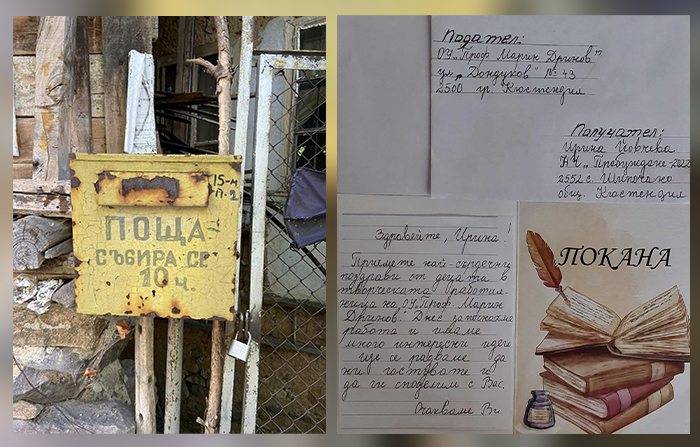 15-М
П-1
ПОЩА-
СЪБИРА СЕ
10 ч.
Подател:
ОУ „Проф. Марин Дринов"
ул. „Дондуков" № 43
2500 гр. Кюстендил
Получател:
Ирина Йовчева
НЧ „Пробуждане-2022
2552 с. Шипочано
общ. Кюстендил
Здравейте, Ирина!
Приемете най-сърдечни
поздрави от децата в
творческата работил-
ница на ОУ „Проф. Марин
Дринов". Днес започнахме
работа и имаме
много интересни идеи
ще се радваме да
ни гостувате и
да ги споделим с Вас.
Очакваме Ви
ПОКАНА